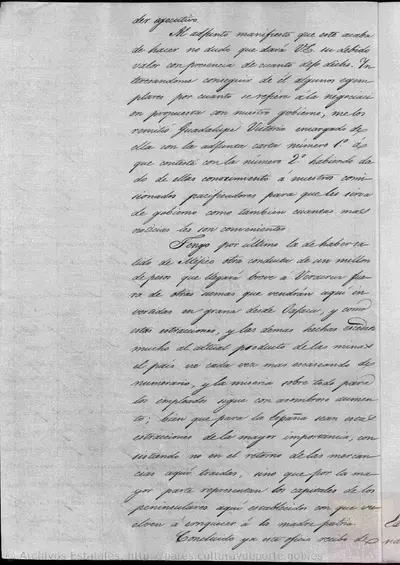 der ejecutivo.
Al adjunto manifiesto que este acaba
de hacer no dudo que dará V.E. su debido
valor con presencia de cuanto dejo dicho. In
teresandome conseguir de él algunos egem
plares por cuanto se refiere á la negociaci
on propuesta con nuestro gobierno, me los
remitió Guadalupe Victoria encargado de
ella con la adjunta carta número 1º á
que contesté con la número 2º habiendo da
do de ellas conocimiento á nuestros comi
sionados pacificadores para que les sirva
de gobierno como tambien cuantas mas
noticias les son convenientes.
Tengo por ultimo la de haber sa
lido de Méjico otra conducta de un millon
de pesos que llegará breve á Veracruz fue
ra de otras sumas que vendrán aquí in
vertidas en grana desde Oajaca, y como
estas estracciones, y las demas hechas esceden
mucho al actual producto de las minas
el país va cada vez mas escaseando de
numerario, y la miseria sobre todo para
los empleados sigue con asombroso aumen
to; bien que para la España sean esas
estracciones de la mayor importancia, con
sistiendo no en el retorno de las mercan
cias aquí traidas, sino que por la ma
yor parte representan los capitales de los
peninsulares aqui establecidos con que vu
elven á enriquecer á la madre patria.
Concluido ya este oficio recibo de
© Archivos Estatales, http://pares.culturaydeporte.gob.es